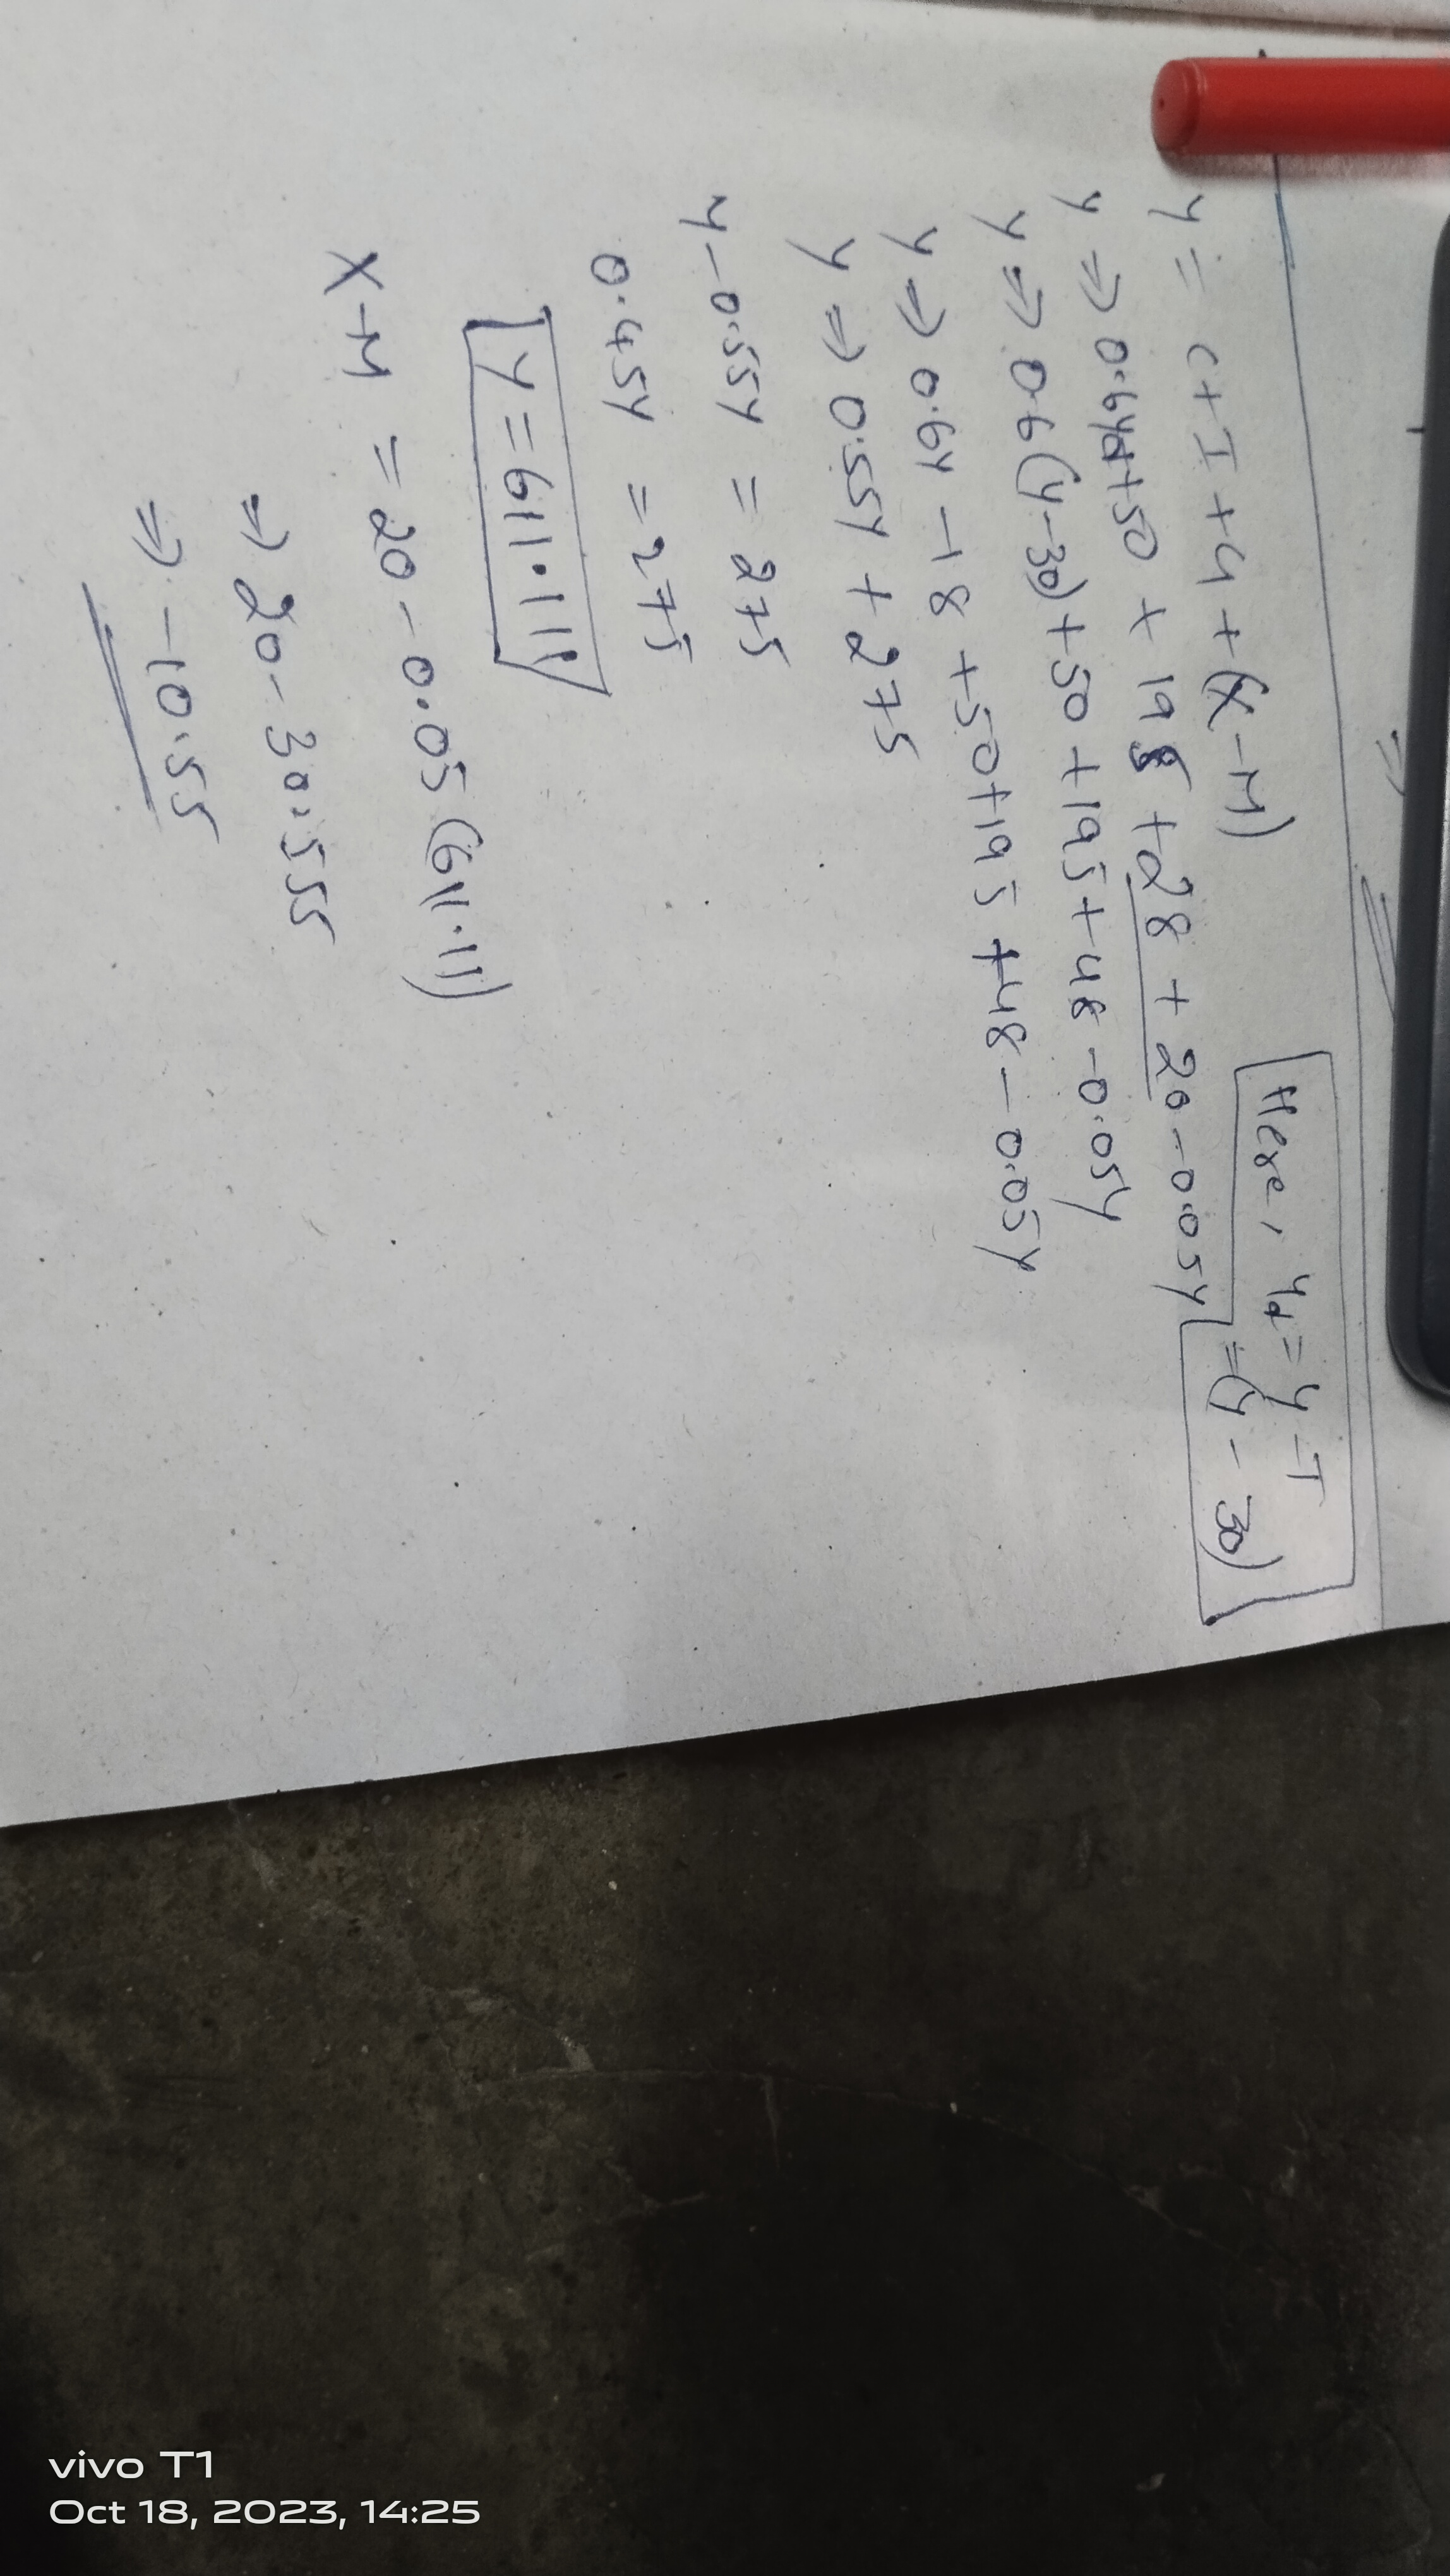 Here, Yd = Y - T
= (Y - 30)
Y = C + I + G + (X - M)
Y ⇒ 0.6Yd + 50 + 195 + 28 + 20 - 0.05Y
Y ⇒ 0.6(Y - 30) + 50 + 195 + 48 - 0.05Y
Y ⇒ 0.6Y - 18 + 50 + 195 + 48 - 0.05Y
Y ⇒ 0.55Y + 275
Y - 0.55Y = 275
0.45Y = 275
Y = 611.11
X - M = 20 - 0.05(611.11)
⇒ 20 - 30.555
⇒ -10.55
vivo T1
Oct 18, 2023, 14:25